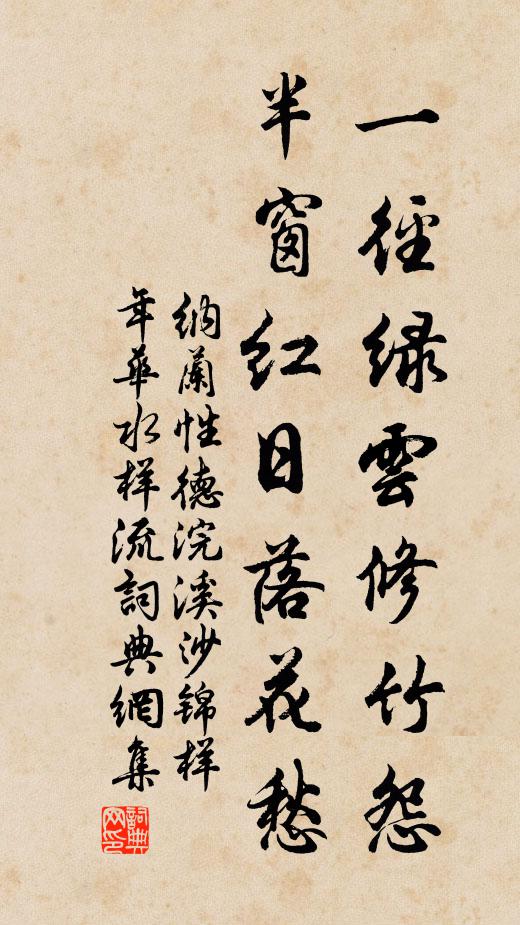 一徑緑雲修竹怨
半窗紅日落花愁
納蘭性德浣溪沙錦样
年華水样流詞典網集
詞典网印